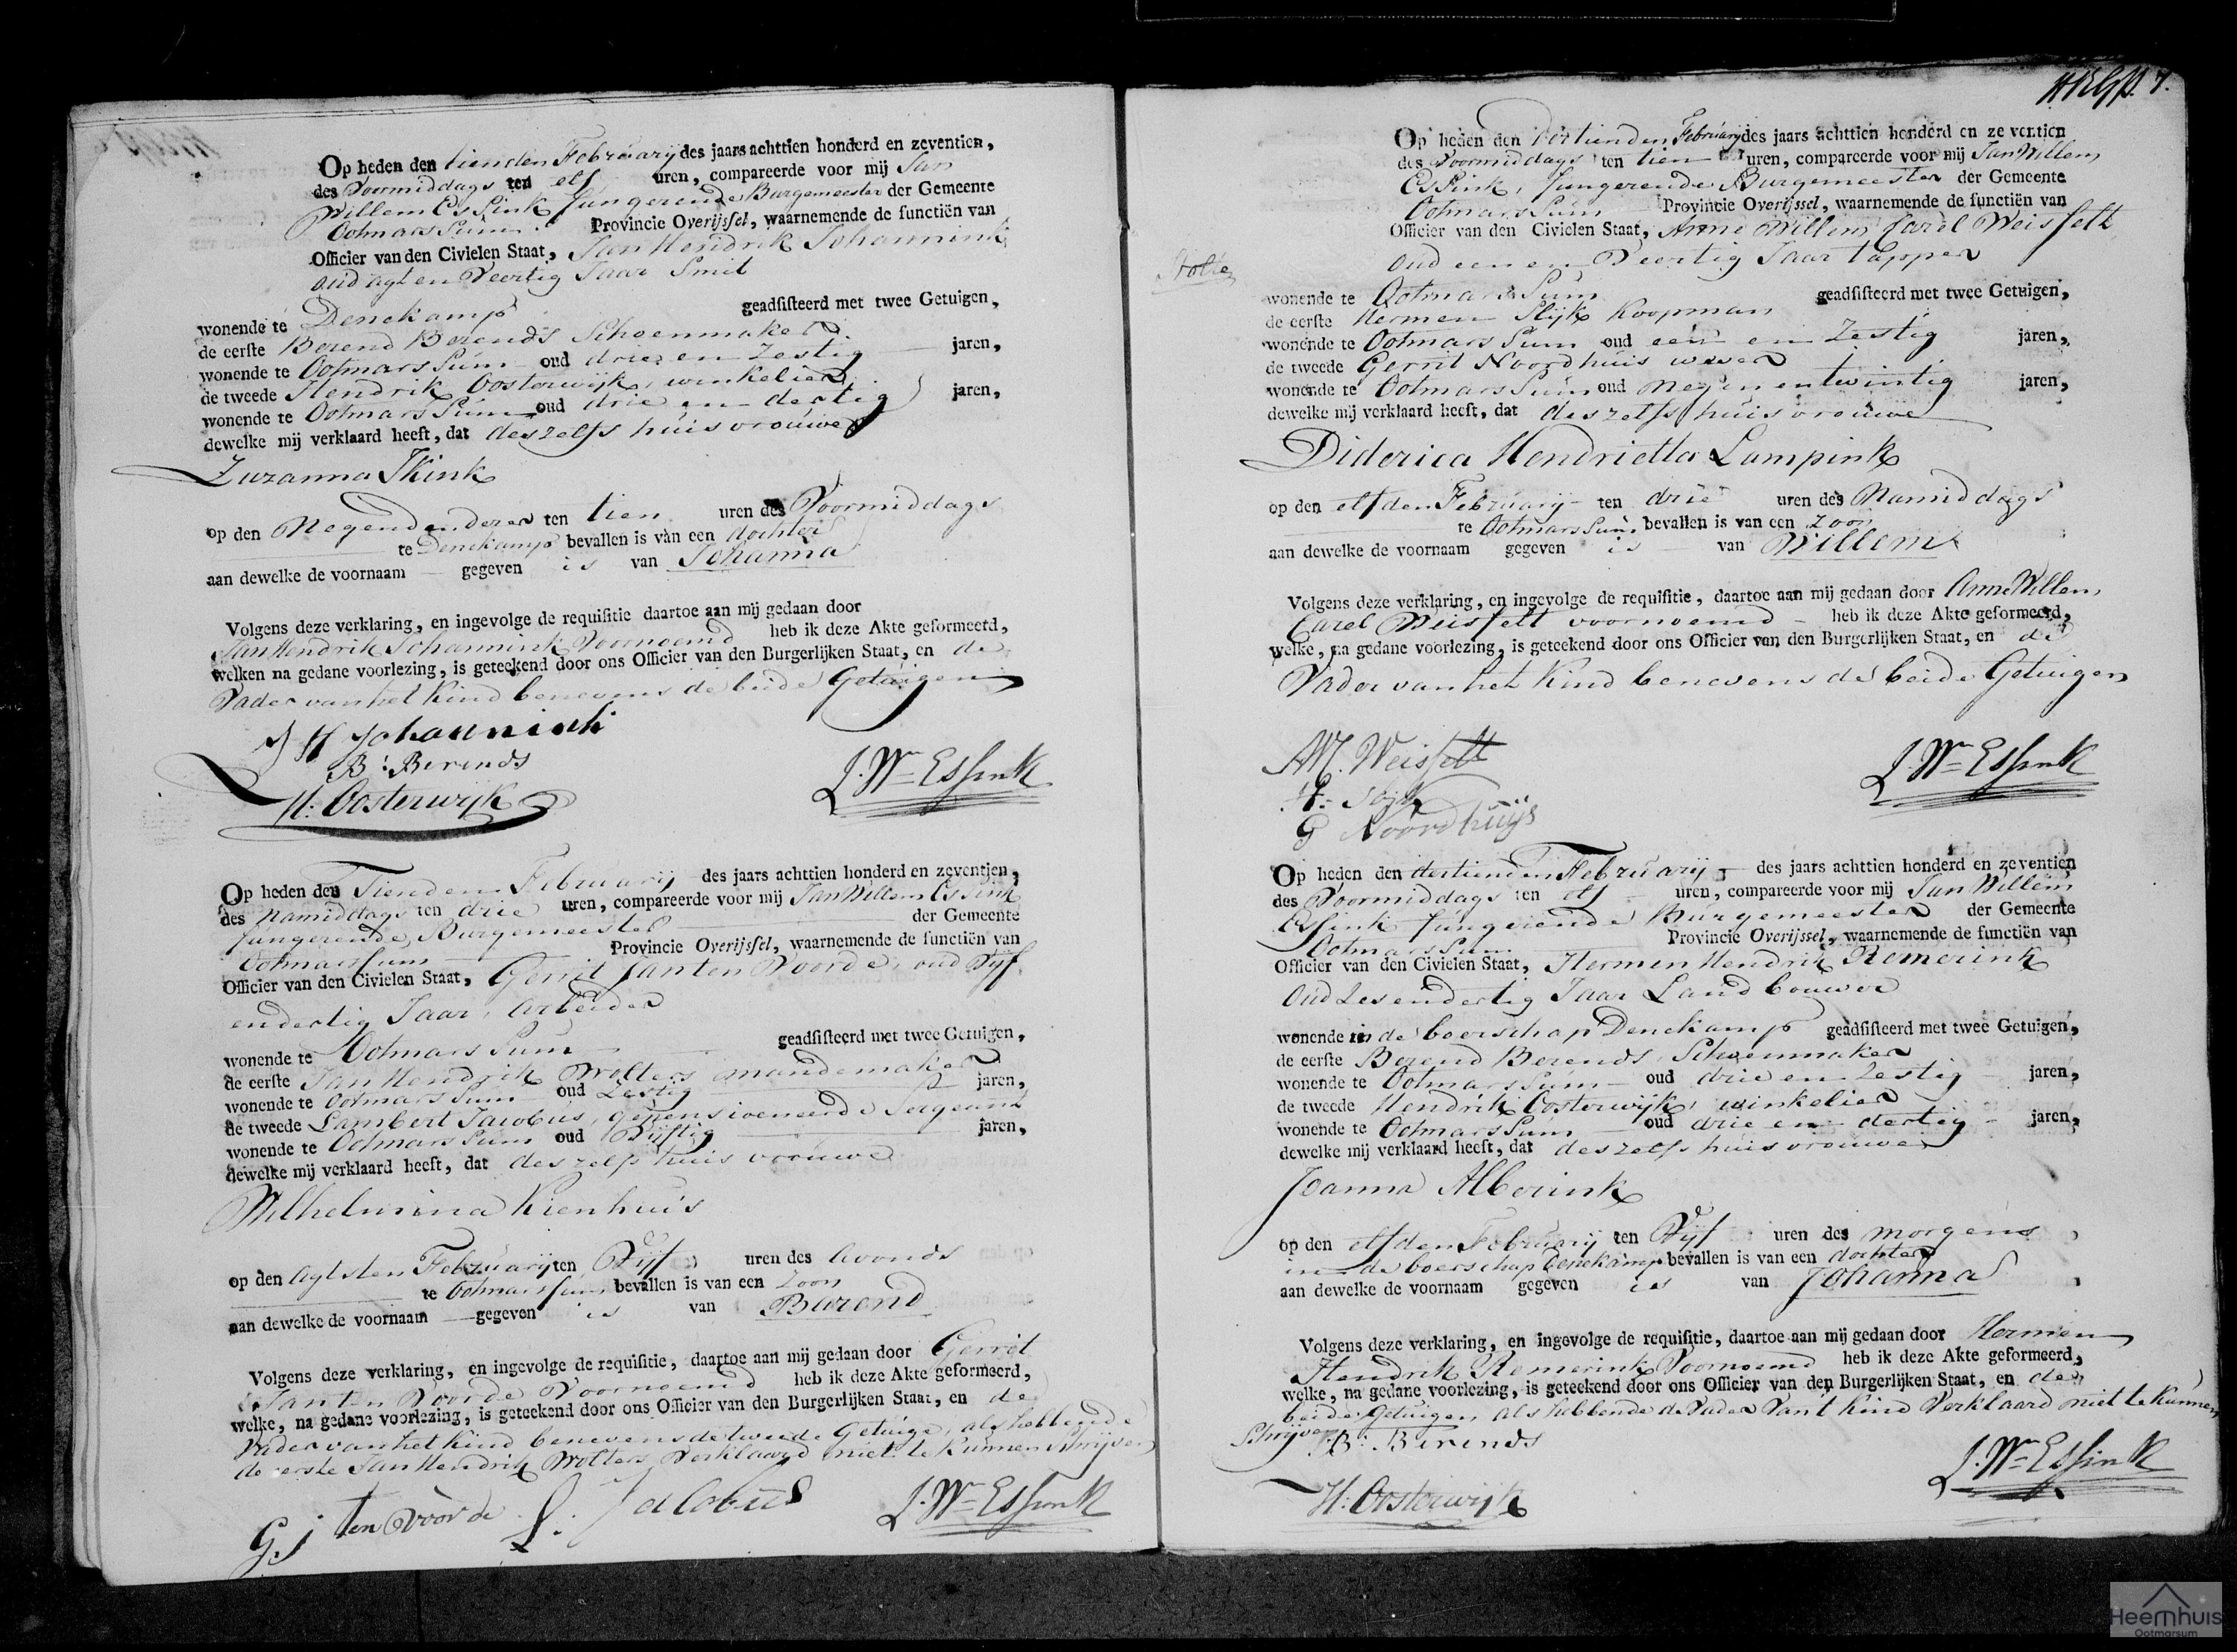 Op heden den tienden Februarij des jaars achttien honderd en zeventien,
des Voormiddags ten elf uren, compareerde voor mij Jan
Willem Essink fungerende Burgemeester der Gemeente
Ootmarssum Provincie Overijssel, waarnemende de functiën van
Officier van den Civielen Staat, Jan Hendrik Johannink
oud agt en Veertig Jaar Smit
wonende te Denekamp geadsisteerd met twee Getuigen,
de eerste Berend Berends Schoenmaker
wonende te Ootmarssum oud drie en Zestig jaren,
de tweede Hendrik Oosterwijk, winkelier
wonende te Ootmarssum oud drie en dertig jaren,
dewelke mij verklaard heeft, dat deszelfs huisvrouwe
Zuzanna Ikink
op den Negenden dezer ten tien uren des Voormiddags
te Denekamp bevallen is van een dochter
aan dewelke de voornaam gegeven is van Johanna
Volgens deze verklaring, en ingevolge de requisitie daartoe aan mij gedaan door
Jan Hendrik Johannink Voornoemd heb ik deze Akte geformeerd,
welken na gedane voorlezing, is geteekend door ons Officier van den Burgerlijken Staat, en de
Vader van het Kind benevens de beide Getuigen
J H Johannink
B: Berends
H: Oosterwijk
J. Wm Essink
Op heden den Tienden Februarij des jaars achttien honderd en zeventien,
des Namiddags ten drie uren, compareerde voor mij Jan Willem Essink
fungerende Burgemeester der Gemeente
Ootmarssum Provincie Overijssel, waarnemende de functiën van
Officier van den Civielen Staat, Gerrit Jan ten Voorde, oud Vijf
en dertig Jaar, Arbeider
wonende te Ootmarssum geadsisteerd met twee Getuigen,
de eerste Jan Hendrik Wolters mandemaker
wonende te Ootmarssum oud Zestig jaren,
de tweede Lambert Jacobus, gepensioeneerde Sergeant
wonende te Ootmarssum oud Vijftig jaren,
dewelke mij verklaard heeft, dat deszelfs huisvrouwe
Wilhelmina Kienhuis
op den agtsten Februarij ten Vijf uren des Avonds
te Ootmarssum bevallen is van een Zoon
aan dewelke de voornaam gegeven is van Barend
Volgens deze verklaring, en ingevolge de requisitie, daartoe aan mij gedaan door Gerrit
Jan ten Voorde Voornoemd heb ik deze Akte geformeerd,
welke, na gedane voorlezing, is geteekend door ons Officier van den Burgerlijken Staat, en de
Vader van het Kind benevens de tweede Getuige, als hebbende
de eerste Jan Hendrik Wolters Verklaard niet te kunnen Schrijven
G. J ten Voorde L: Jacobus J. Wm Essink
7.
Op heden den dertienden Februarij des jaars achttien honderd en zeventien
des Voormiddags ten tien uren, compareerde voor mij Jan Willem
Essink, fungerende Burgemeester der Gemeente
Ootmarssum Provincie Overijssel, waarnemende de functiën van
Officier van den Civielen Staat, Anne Willem Carel Weisfelt
oud een en Veertig Jaar tapper
wonende te Ootmarssum geadsisteerd met twee Getuigen,
de eerste Hermen Slijk Koopman
wonende te Ootmarssum oud een en Zestig jaren,
de tweede Gerrit Noordhuis wever
wonende te Ootmarssum oud Negen en twintig jaren,
dewelke mij verklaard heeft, dat deszelfs huisvrouwe
Diderica Hendrietta Lampink
op den elfden Februarij ten drie uren des Namiddags
te Ootmarssum bevallen is van een Zoon
aan dewelke de voornaam gegeven is van Willem
Volgens deze verklaring, en ingevolge de requisitie, daartoe aan mij gedaan door Anne Willem
Carel Weisfelt voornoemd heb ik deze Akte geformeerd,
welke, na gedane voorlezing, is geteekend door ons Officier van den Burgerlijken Staat, en de
Vader van het Kind benevens de beide Getuigen
Weisfelt
G Noordhuijs
J. Wm Essink
Op heden den dertienden Februarij des jaars achttien honderd en zeventien
des Voormiddags ten elf uren, compareerde voor mij Jan Willem
Essink fungerende Burgemeester der Gemeente
Ootmarssum Provincie Overijssel, waarnemende de functiën van
Officier van den Civielen Staat, Hermen Hendrik Remerink
oud Zes en dertig Jaar Landbouwer
wonende in de boerschap Denekamp geadsisteerd met twee Getuigen,
de eerste Berend Berends, Schoenmaker
wonende te Ootmarssum oud drie en Zestig jaren,
de tweede Hendrik Oosterwijk, winkelier
wonende te Ootmarssum oud drie en dertig jaren,
dewelke mij verklaard heeft, dat deszelfs huisvrouwe
Joanna Alberink
op den elfden Februarij ten Vijf uren des morgens
in de boerschap Denekamp bevallen is van een dochter
aan dewelke de voornaam gegeven is van Johanna
Volgens deze verklaring, en ingevolge de requisitie, daartoe aan mij gedaan door Hermen
Hendrik Remerink Voornoemd heb ik deze Akte geformeerd,
welke, na gedane voorlezing, is geteekend door ons Officier van den Burgerlijken Staat, en de
beide Getuigen als hebbende de Vader Van't Kind Verklaard niet te kunnen
Schrijven
B: Berends
H: Oosterwijk
J. Wm Essink
Heemhuis
Ootmarsum